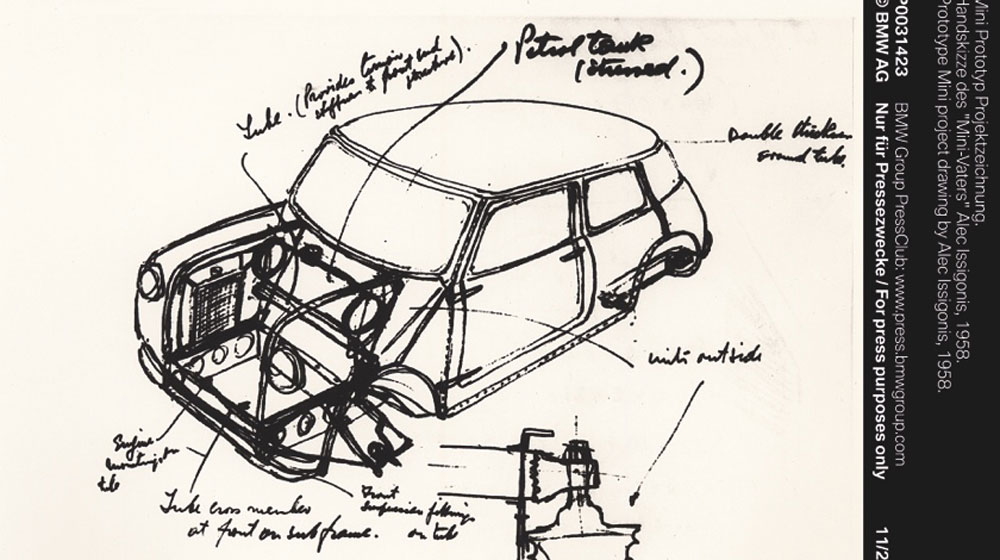 Petrol tank
(stressed.)
Tube. (Provides torsion and
stiffness to front
structure).
Double thickness
round tube.
units outside
Engine
mountings on
tube
Tube cross member
at front on subframe.
Front
suspension fittings
on tube
Mini Prototyp Projektzeichnung.
Handskizze des "Mini-Vaters" Alec Issigonis, 1958.
Prototype Mini project drawing by Alec Issigonis, 1958.
P0031423 BMW Group PressClub: www.press.bmwgroup.com
© BMW AG Nur für Pressezwecke / For press purposes only 11/2